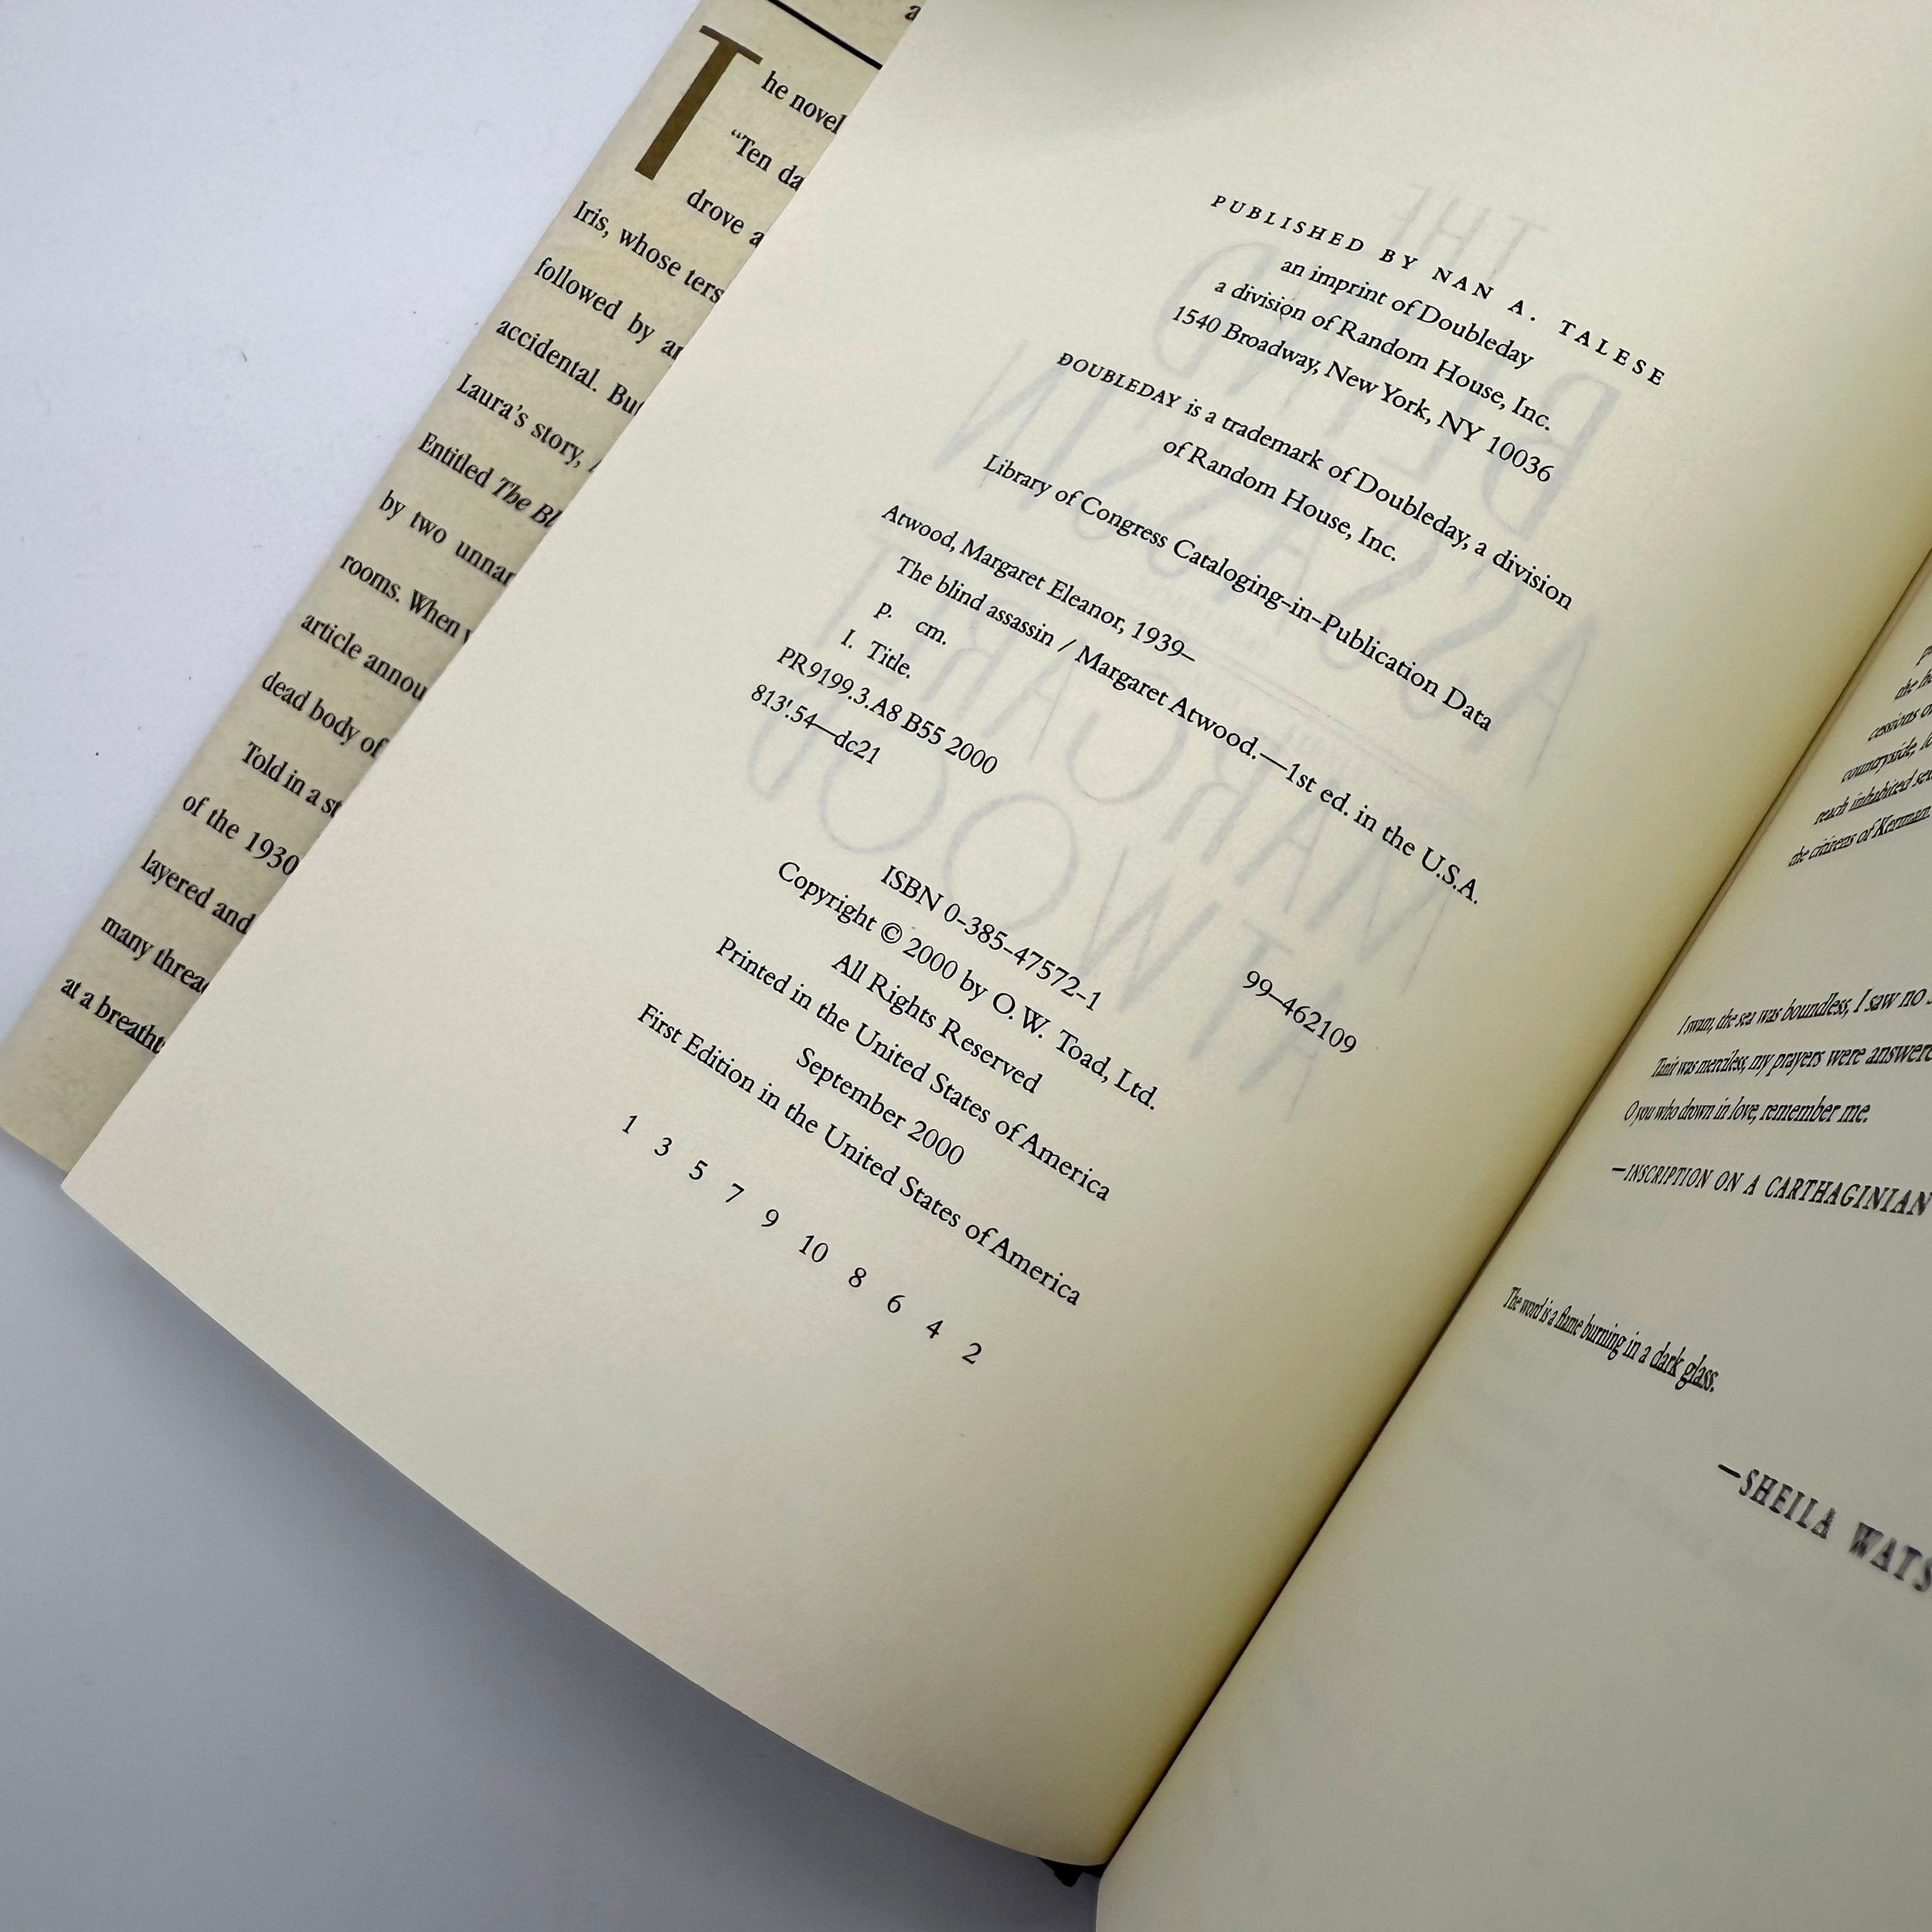 The novel
“Ten da
drove a
Iris, whose ters
followed by an
accidental. But
Laura’s story,
Entitled The Bl
by two unnar
rooms. When
article annou
dead body of
Told in a st
of the 1930
layered and
many threa
at a breath
PUBLISHED BY NAN A. TALESE
an imprint of Doubleday
a division of Random House, Inc.
1540 Broadway, New York, NY 10036
DOUBLEDAY is a trademark of Doubleday, a division
of Random House, Inc.
Library of Congress Cataloging-in-Publication Data
Atwood, Margaret Eleanor, 1939–
The blind assassin / Margaret Atwood.—1st ed. in the U.S.A.
p. cm.
I. Title.
PR9199.3.A8 B55 2000
813'.54—dc21 99-462109
ISBN 0-385-47572-1
Copyright © 2000 by O. W. Toad, Ltd.
All Rights Reserved
Printed in the United States of America
September 2000
First Edition in the United States of America
1 3 5 7 9 10 8 6 4 2
the
cessions
countryside,
reach inhabited
the citizens of Kerman.
I swam, the sea was boundless, I saw no
Tanit was merciless, my prayers were answere
O you who drown in love, remember me.
—INSCRIPTION ON A CARTHAGINIAN
The word is a flame burning in a dark glass.
—SHEILA WATS